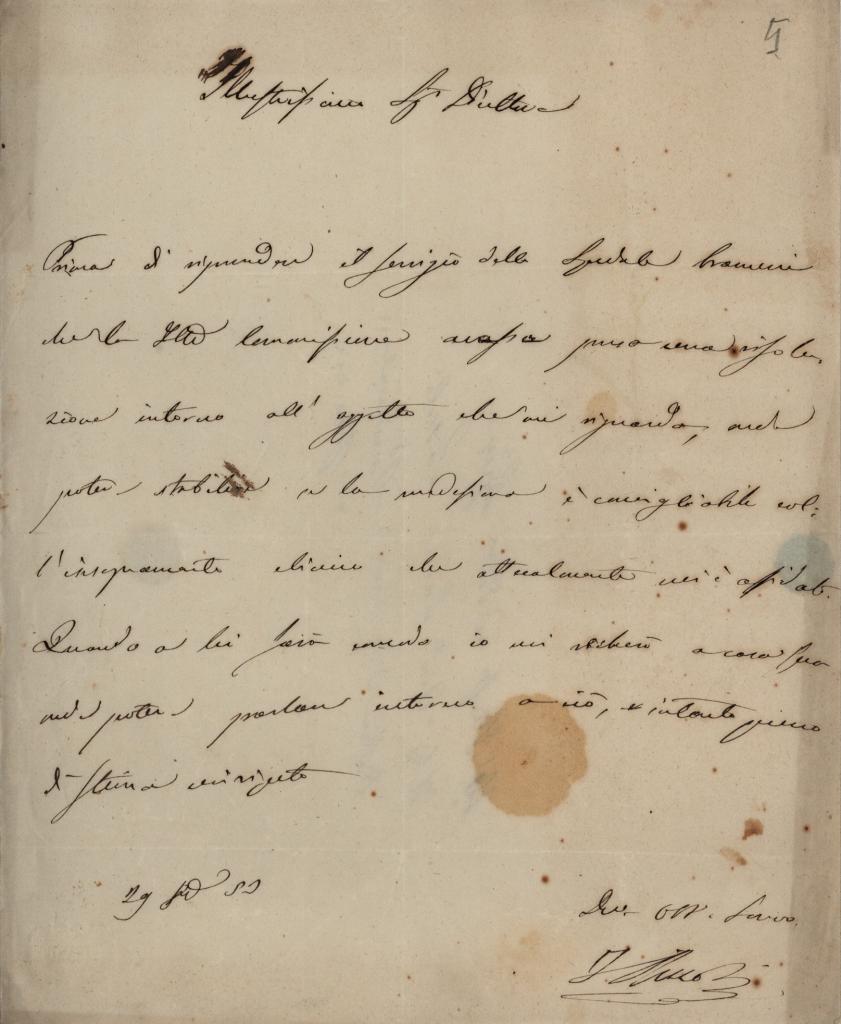 5
Illustrissimo Sig. Direttore
Prima di riprendere il servizio dello Spedale bramerei
che la Commissione una risolu-
zione intorno all' oggetto che mi riguarda, onde
poter stabilire se la medesima è conciliabile col-
l'insegnamento clinico che attualmente mi è affidato.
Quando a lei sarà comodo io mi recherò a casa sua
onde poter parlare intorno a ciò, e intanto pieno
di stima mi ripeto
29
Dev. Obb. Servo